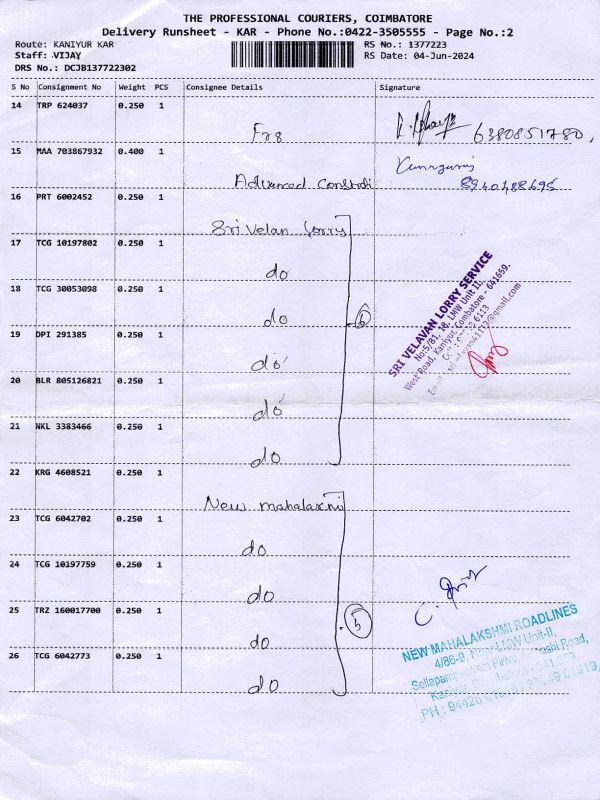 THE PROFESSIONAL COURIERS, COIMBATORE
Delivery Runsheet - KAR - Phone No.:0422-3505555 - Page No.:2
Route: KANIYUR KAR
RS No.: 1377223
Staff: VIJAY
RS Date: 04-Jun-2024
DRS No.: DCJB137722302
S No Consignment No Weight PCS Consignee Details Signature
14 TRP 624037 0.250 1
6380851780,
15 MAA 703867932 0.400 1
Advanced
8940488695
16 PRT 6002452 0.250 1
Sri Velan Lorry
17 TCG 10197802 0.250 1
do
18 TCG 30053098 0.250 1
do
6
19 DPI 291385 0.250 1
do
20 BLR 805126821 0.250 1
do
21 NKL 3383466 0.250 1
do
SRI VELAVAN LORRY SERVICE
No:5/81, 18, LMW Unit II,
West Road, Kaniyur, Coimbatore - 641659.
22 KRG 4608521 0.250 1
New mahalaxmi
23 TCG 6042702 0.250 1
do
24 TCG 10197759 0.250 1
do
25 TRZ 160017700 0.250 1
do
5
26 TCG 6042773 0.250 1
do
NEW MAHALAKSHMI ROADLINES
4/86-9, Near LMW Unit-II,